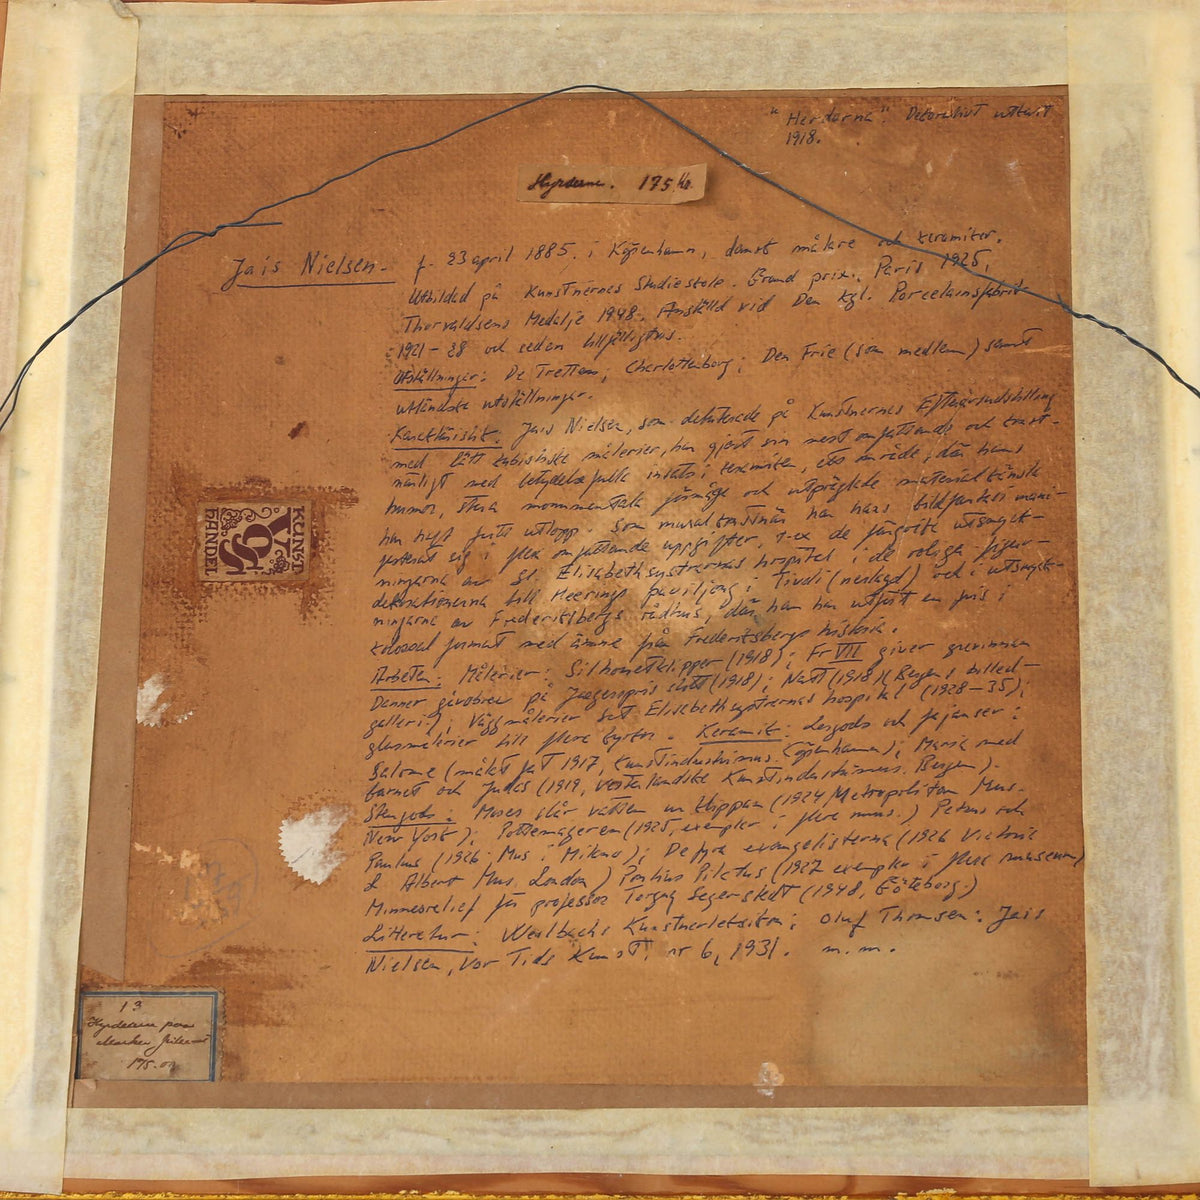 "Herdarna". Dekorativt utkast
1918.
Hyrderne. 175 Kr.
Jais Nielsen.
f. 23 april 1885, i Köpenhamn, dansk målare och keramiker.
Utbildad på Kunstnernes Studieskole. Grand prix: Paris 1925,
Thorvaldsens Medalje 1948. Anställd vid Den Kgl. Porcelainsfabrik
1921-28 och sedan tillfälligtvis.
Utställningar: De Tretten; Charlottenborg; Den Frie (som medlem) samt
utländska utställningar.
Karakteristik: Jais Nielsen, som debuterade på Kunstnernes Efterårsudstilling
med lätt kubistiska målerier, han gjort sin mest omfattande och konst-
närligt med betydelsefulla insats i keramiken, ett område, där hans
humor, stora monumentala förmåga och utpräglade materialkänsla
har haft fritt utlopp. Som muralkonstnär har hans bildfantasi mani-
festerat sig i flera omfattande uppgifter, t.ex de färgrika utsmyck-
ningarna av St. Elisabethsystrarnas hospital i de roliga figur-
dekorationerna till Heerings paviljong i Tivoli (nerlagd) och i utsmyck-
ningarna av Frederiksbergs rådhus, där han har utfört en fris i
kolossal format med ämne från Frederiksbergs historia.
Arbeten: Målerier: Silhouetklipper (1918); Fr VII giver grevinnan
Danner gåvobrev på Jægerspris slott (1918); Natt (1918) (Bergens billed-
galleri); Väggmålerier Sct Elisabethsystrarnas hospital (1928-35);
glasmålerier till flera kyrkor. Keramik: Lergods och fajanser:
Salome (målat fat 1917, Kunstindustrimus. Köpenhamn); Maria med
barnet och Judas (1919, Vesterlandske Kunstindustrimus. Bergen).
Stengods: Moses slår vatten ur klippan (1924 Metropolitan Mus.
New York); Pottemageren (1925, exemplar i flera mus.) Petrus och
Paulus (1926 Mus i Milano); De fyra evangelisterna (1926 Victoria
& Albert Mus. London) Pontius Pilatus (1927 exemplar i flera museum)
Minnesrelief för professor Torgny Segerstedt (1948, Göteborg)
Litteratur: Weilbachs Kunstnerleksikon; Oluf Thomsen: Jais
Nielsen, Vor Tids Kunst, nr 6, 1931. m.m.
KUNST
HANDEL
13
Hyrderne paa
175.00